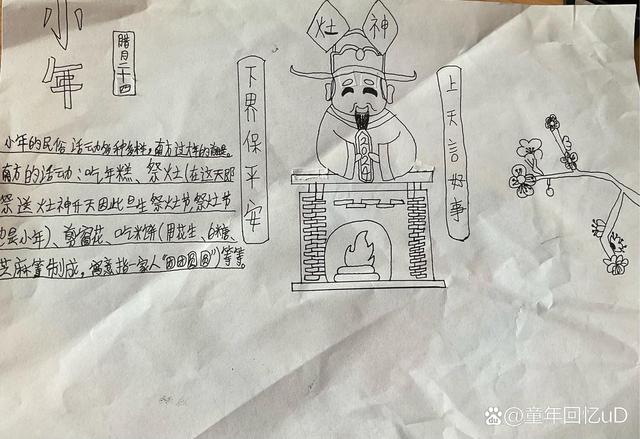 小年
腊月二十四
灶神
下界保平安
上天言好事
2024
小年的民俗活动多种多样,南方过
南方的活动:吃年糕、祭灶(在这天即
祭送灶神升天因此旦生祭灶节,祭灶节
也是小年)、剪窗花、吃米饼(用花生、白糖、
芝麻等制成,寓意指一家人“团团圆圆”)等等。
@童年回忆uD